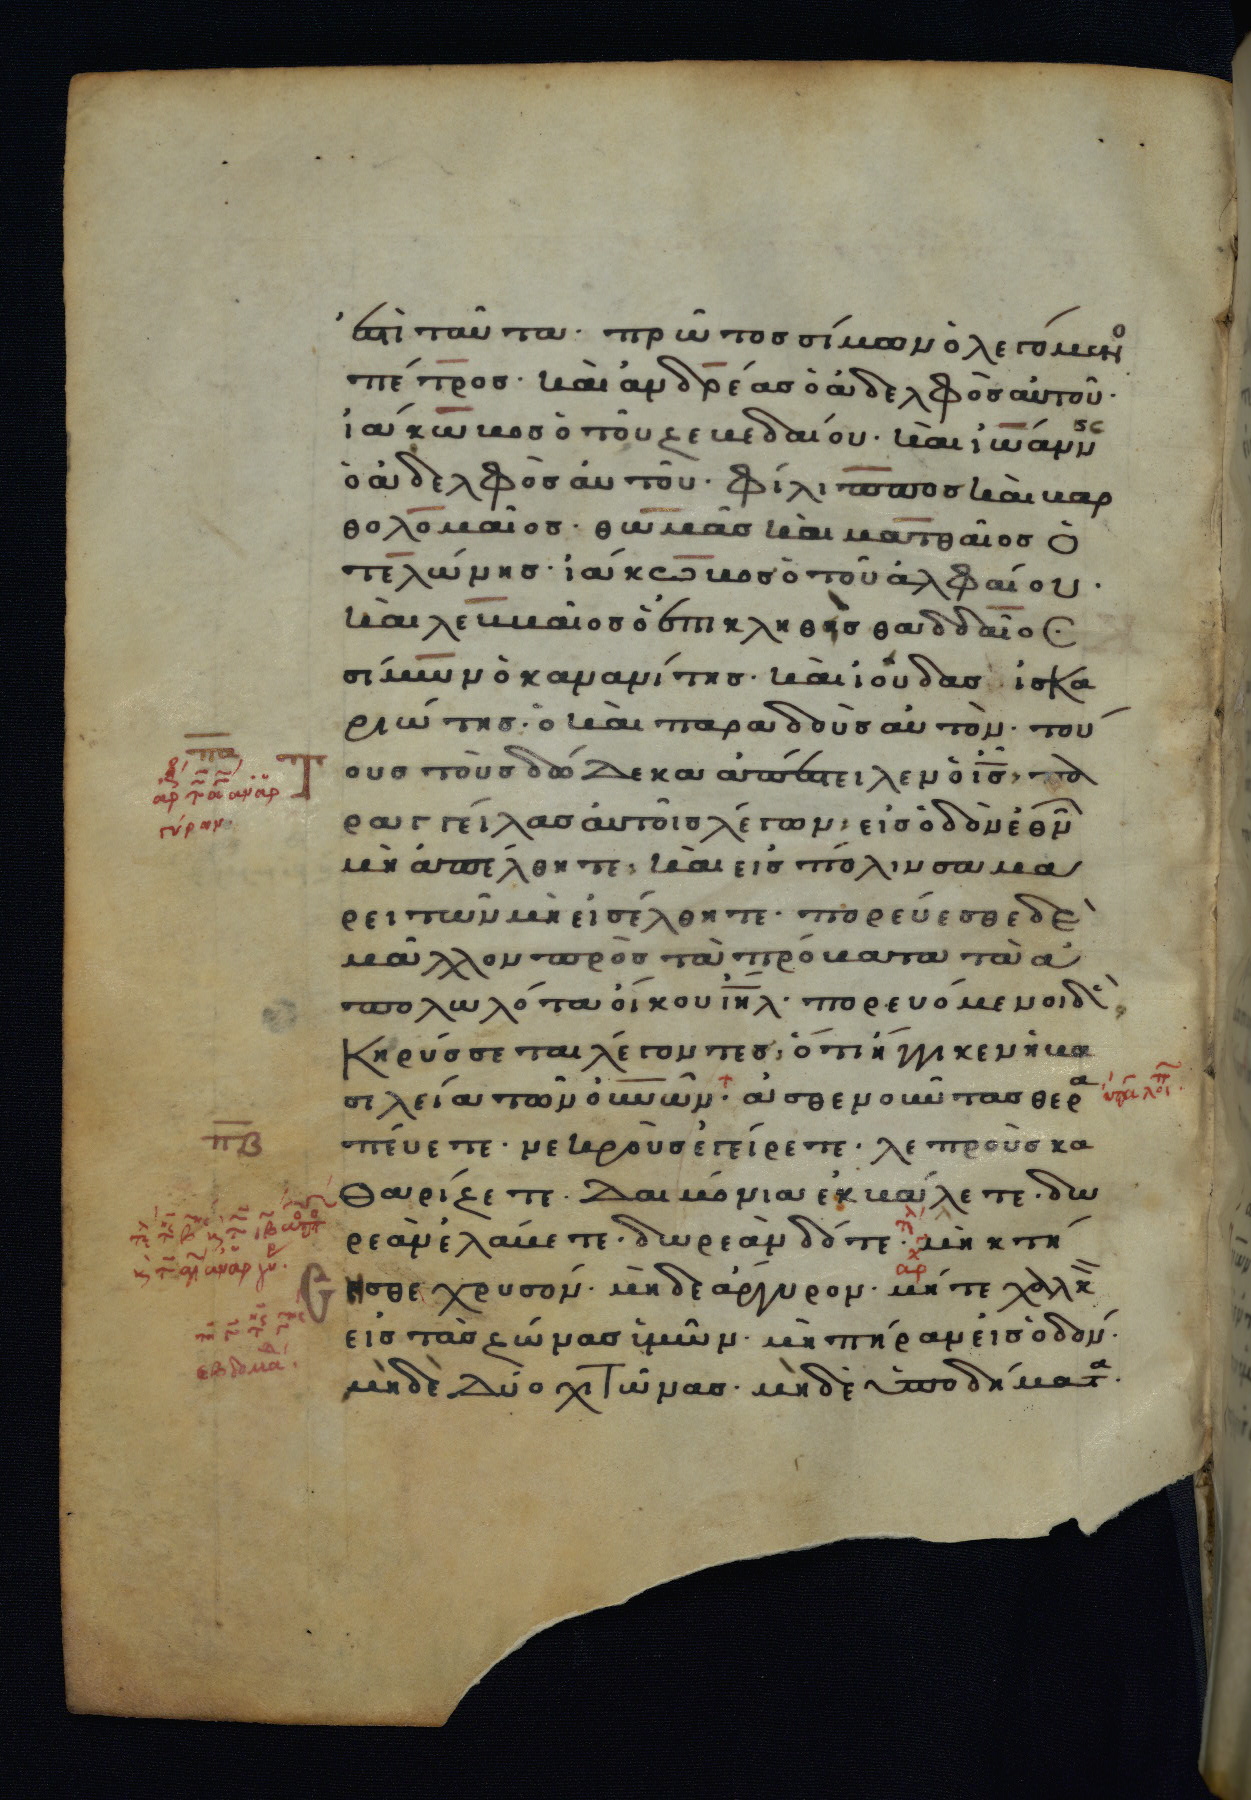 ἐστὶ ταῦτα· πρῶτος σίμων ὁ λεγόμενο
πέτρος· καὶ ἀνδρέας ὁ ἀδελφὸς αὐτοῦ·
ἰάκωβος ὁ τοῦ ζεβεδαίου· καὶ ἰωάννης
ὁ ἀδελφὸς αὐτοῦ· φίλιππος καὶ βαρ
θολομαῖος· θωμᾶς καὶ ματθαῖος ὁ
τελώνης· ἰάκωβος ὁ τοῦ ἀλφαίου·
καὶ λεββαῖος ὁ ἐπικληθεὶς θαδδαῖος·
σίμων ὁ κανανίτης· καὶ ἰούδας ἰσκα
ριώτης· ὁ καὶ παραδοὺς αὐτόν· τού
τους τοὺς δώδεκα ἀπέστειλεν ὁ ις, πα
ραγγείλας αὐτοῖς λέγων· εἰς ὁδὸν ἐθν
μὴ ἀπέλθητε, καὶ εἰς πόλιν σαμα
ρειτῶν μὴ εἰσέλθητε· πορεύεσθε δὲ
μᾶλλον πρὸς τὰ πρόβατα τὰ ἀ
πολωλότα οἴκου ιηλ· πορευόμενοι δὲ,
κηρύσσεται λέγοντες, ὅτι ἤγγικεν ἡ βα
σιλεία τῶν οὐνῶν· ἀσθενοῦντας θερα
πέυετε· νεκροὺς ἐγείρετε· λεπροὺς κα
θαρίζετε· δαιμόνια ἐκβάλετε· δω
ρεὰν ἐλάβετε· δωρεὰν δότε· μὴ κτή
σησθε χρυσόν· μὴδε ἄργυρον· μήτε χαλκ
εἰς τὰς ζώνας ὑμῶν· μὴ πήραν εἰς ὁδόν·
μὴδὲ δύο χιτῶνας· μὴδὲ ὑποδήματα·
πα
πβ